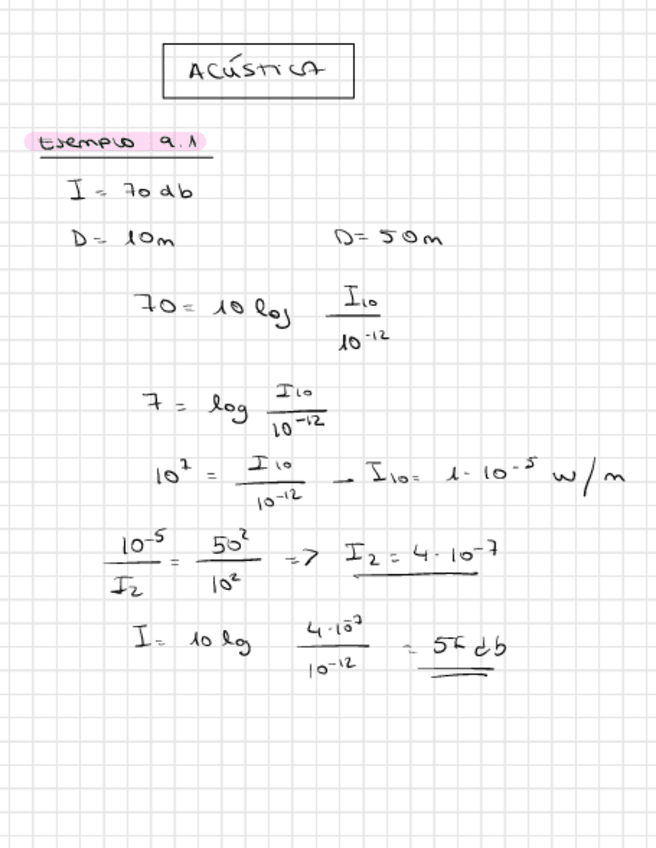 ACÚSTICA
Ejemplo 9.1
I = 70 db
D = 10m D = 50m
70 = 10 log I₁₀ / 10⁻¹²
7 = log I₁₀ / 10⁻¹²
10⁷ = I₁₀ / 10⁻¹² - I₁₀ = 1 · 10⁻⁵ w/m
10⁻⁵ / I₂ = 50² / 10² => I₂ = 4 · 10⁻⁷
I = 10 log 4 · 10⁻⁷ / 10⁻¹² = db